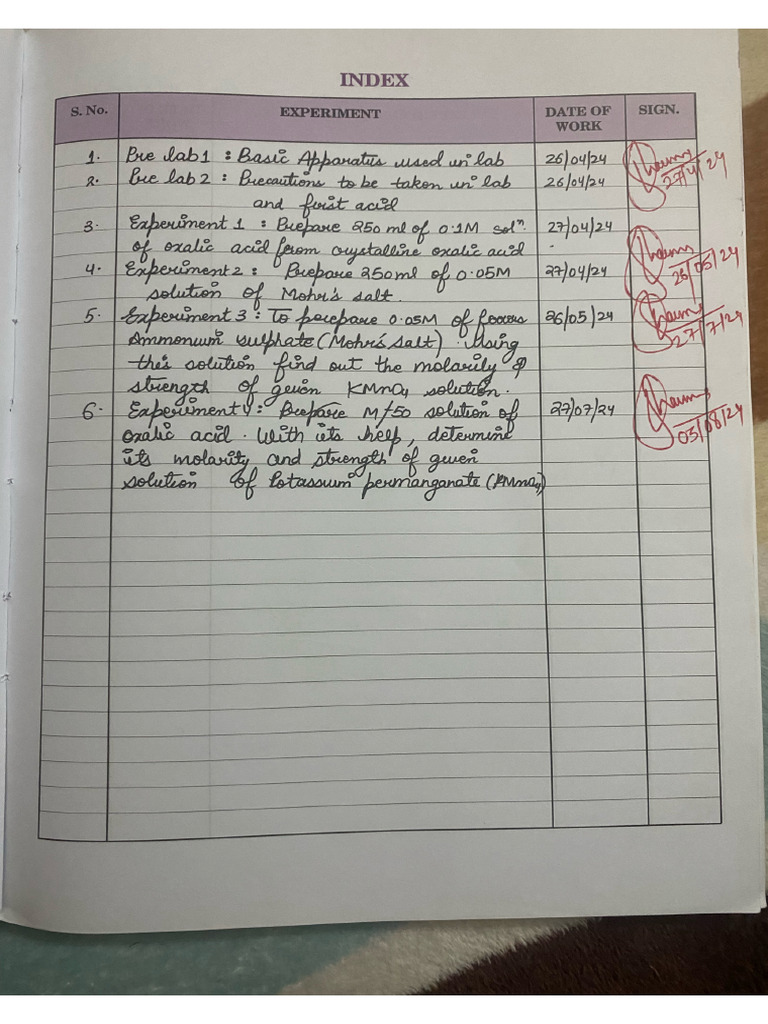 INDEX
S. No. EXPERIMENT DATE OF WORK SIGN.
1. Pre lab 1 : Basic Apparatus used in lab 26/04/24
2. Pre lab 2 : Precautions to be taken in lab 26/04/24 27/4/24
and first acid
3. Experiment 1 : Prepare 250 ml of 0.1M solⁿ. 27/04/24
of oxalic acid from crystalline oxalic acid
4. Experiment 2 : Prepare 250 ml of 0.05M 27/04/24 26/05/24
solution of Mohr's salt.
5. Experiment 3 : To prepare 0.05M of ferrous 26/05/24 27/7/24
Ammonium sulphate (Mohr's salt). Using
this solution find out the molarity &
strength of given KMnO4 solution.
6. Experiment 4 : Prepare M/50 solution of 27/07/24 03/08/24
oxalic acid. With its help, determine
its molarity and strength of given
solution of Potassium permanganate (KMnO4)